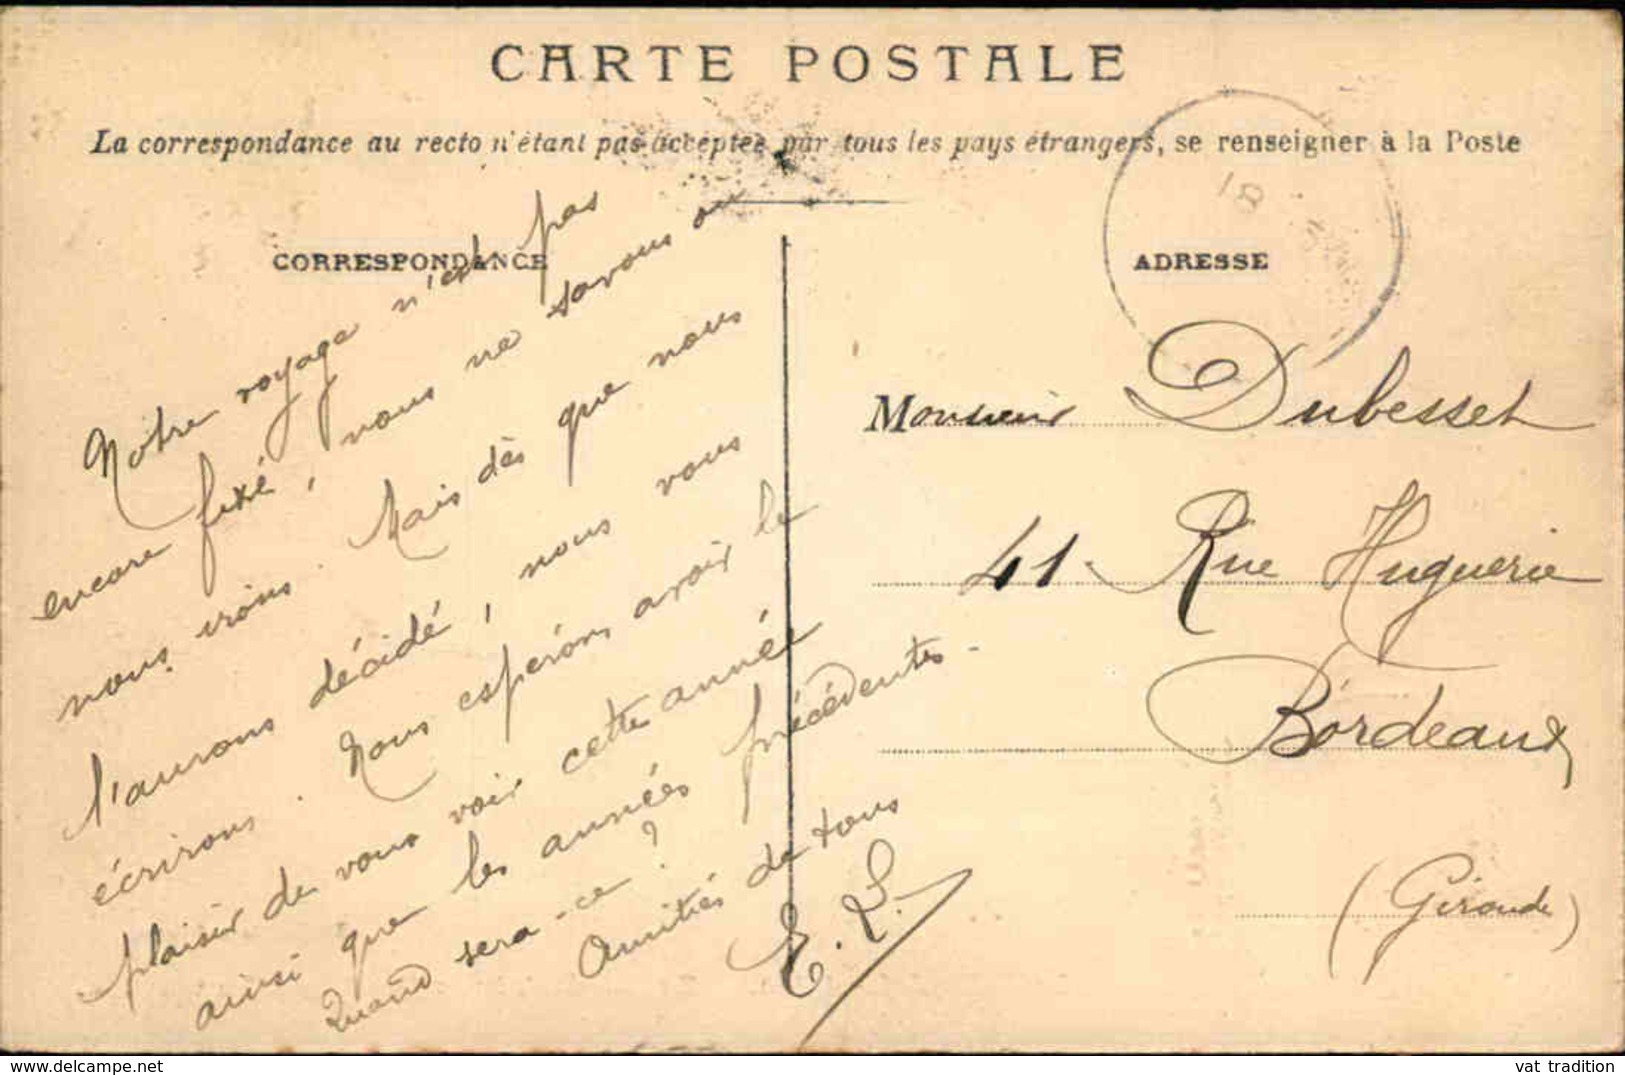 CARTE POSTALE
La correspondance au recto n'étant pas acceptée par tous les pays étrangers, se renseigner à la Poste
CORRESPONDANCE
Notre voyage n'est pas
encore fixé, nous ne savons ou
nous irons. Mais dès que nous
l'aurons décidé, nous vous
écrirons. Nous espérons avoir le
plaisir de vous voir cette année
ainsi que les années précédentes.
Quand sera-ce ?
Amitiés de tous
E. L.
18
ADRESSE
Monsieur Dubesset
41 Rue Huguerie
Bordeaux
(Gironde)
vat tradition